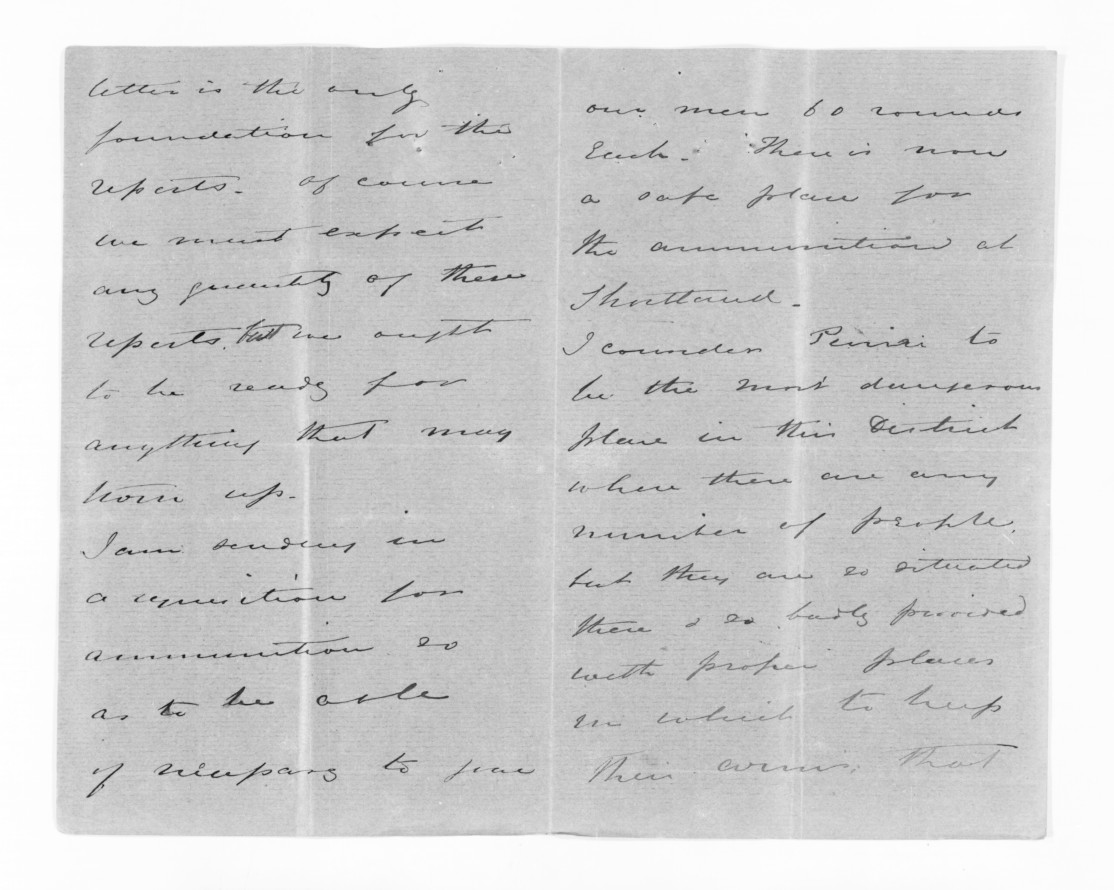 letter is the only
foundation for the
reports. Of course
we must expect
any quantity of these
reports, but we ought
to be ready for
anything that may
turn up.
I am sending in
a requisition for
ammunition so
as to be able
if necessary to give
our men 60 rounds
Each. There is now
a safe place for
the ammunition at
Shortland.
I consider Paiwai to
be the most dangerous
place in this District
where there are any
number of people,
but they are so situated
there & so badly provided
with proper places
in which to keep
their arms, that